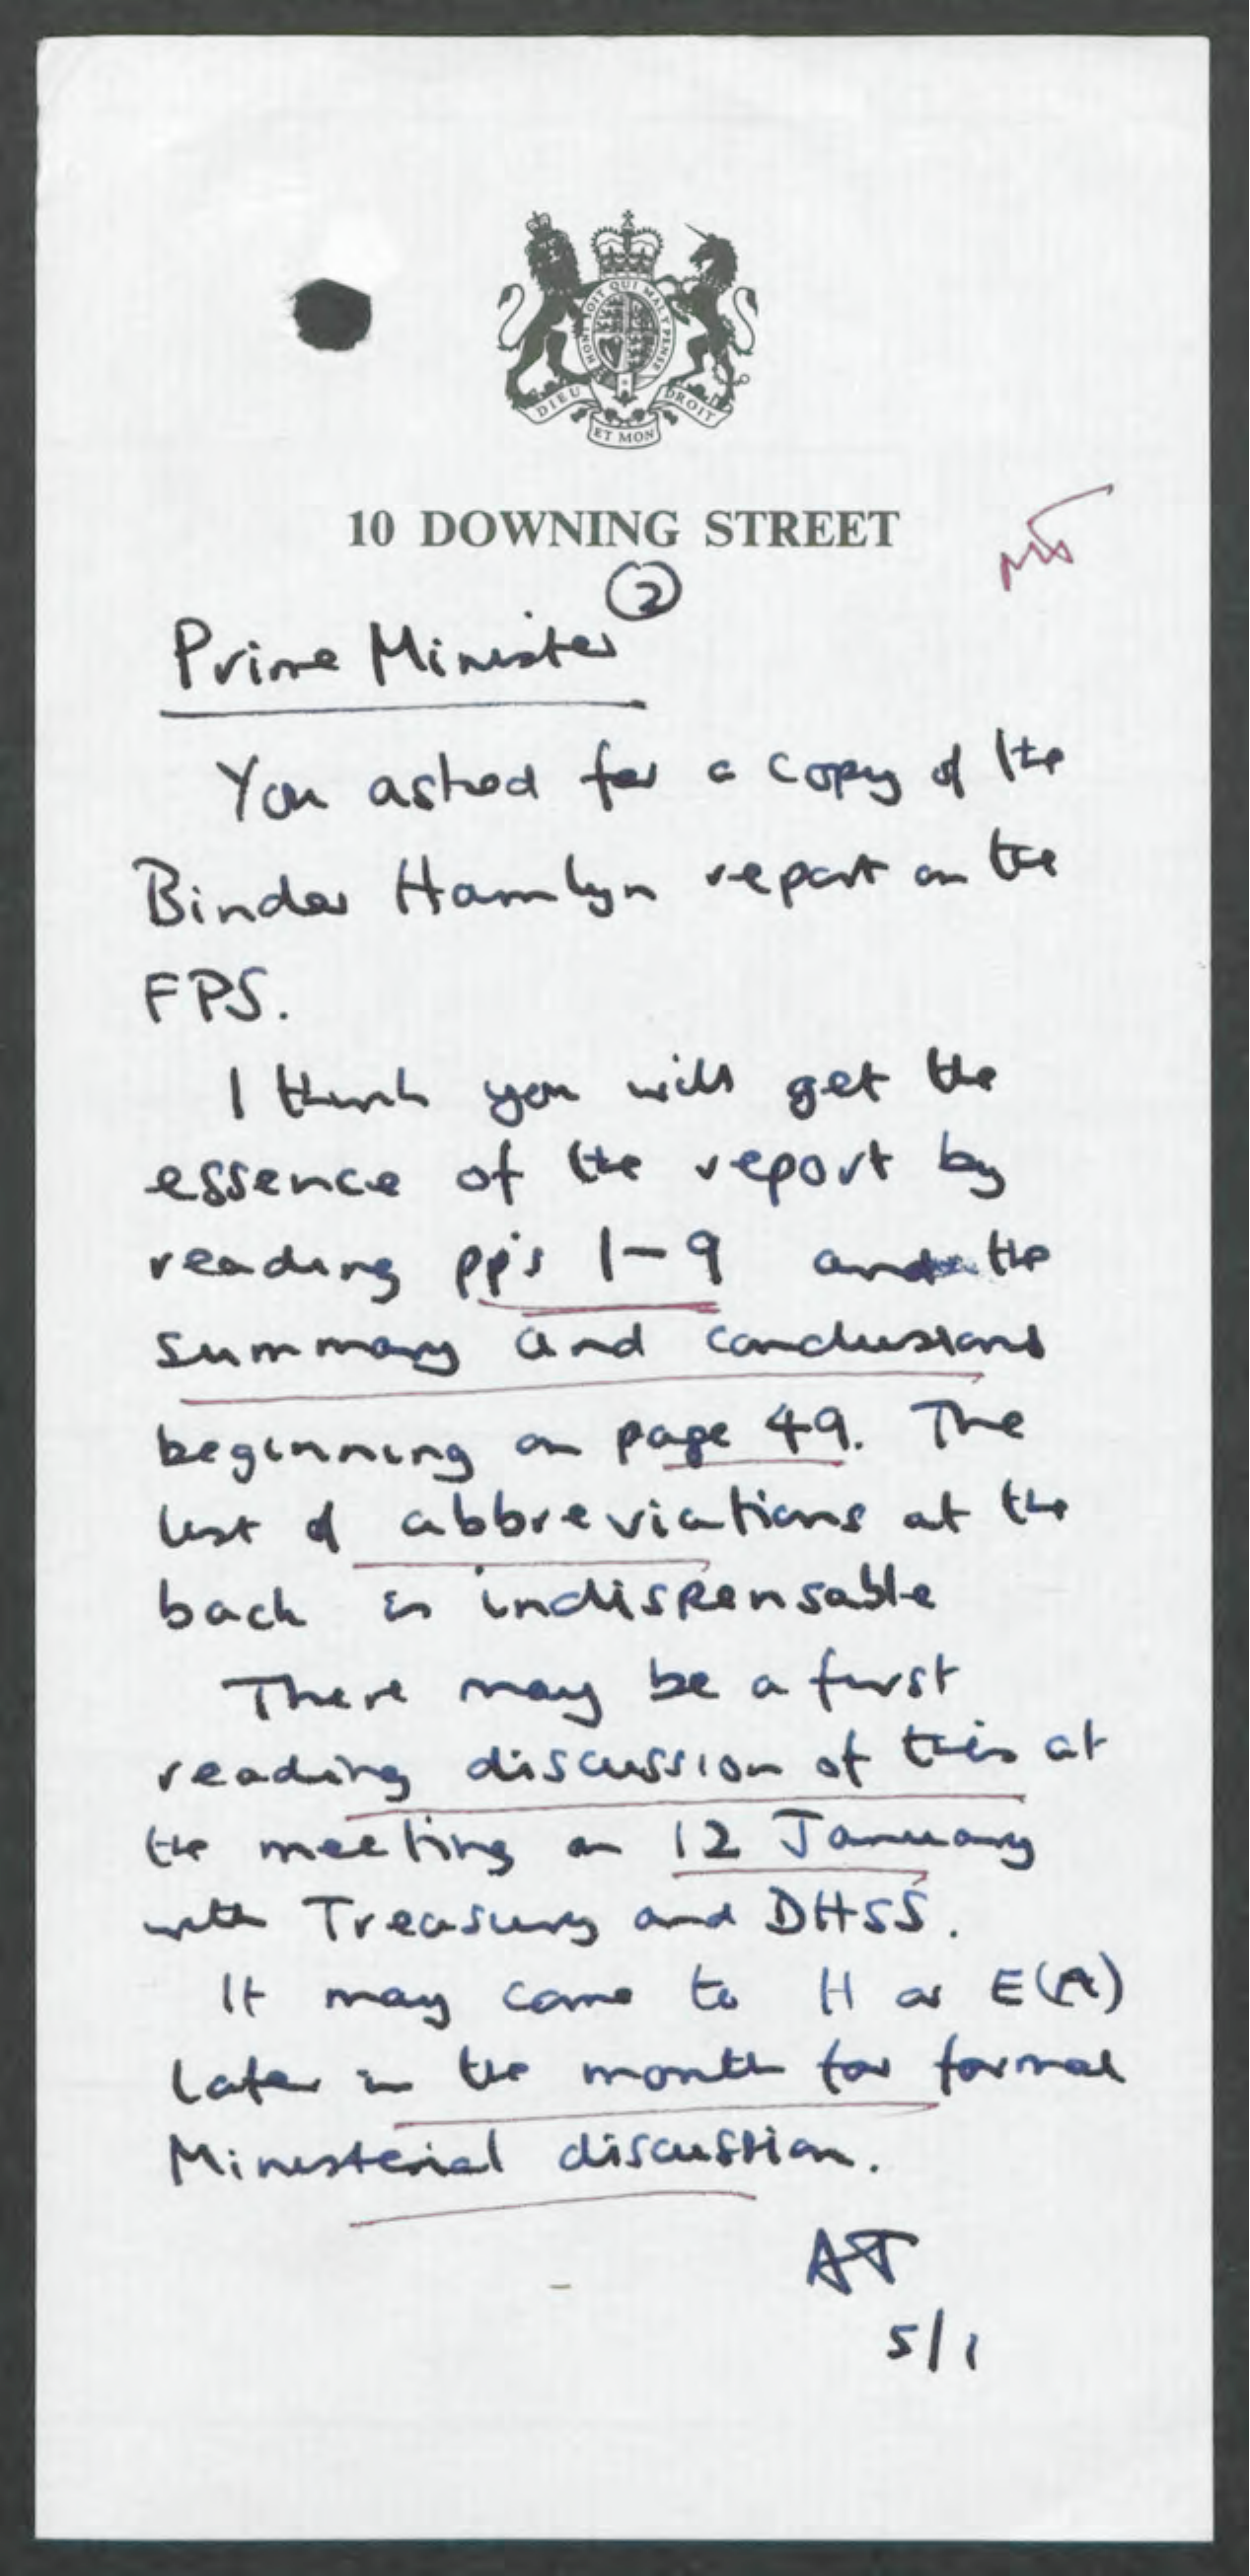 HONI SOIT QUI MAL Y PENSE
DIEU ET MON DROIT
10 DOWNING STREET
2
Prime Minister
You asked for a copy of the
Binder Hamlyn report on the
FPS.
I think you will get the
essence of the report by
reading pp's 1-9 and the
summary and conclusions
beginning on page 49. The
list of abbreviations at the
back is indispensable
There may be a first
reading discussion of this at
the meeting on 12 January
with Treasury and DHSS.
It may come to H or E(A)
later in the month for formal
Ministerial discussion.
AT
5/1